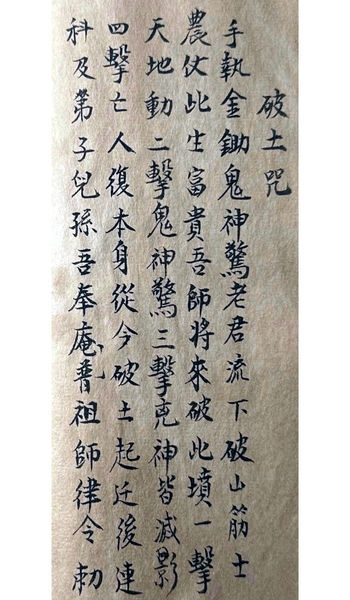 破土咒
手執金鋤鬼神驚老君流下破山筋士
農仗此生富貴吾師將來破此墳一擊
天地動二擊鬼神驚三擊克神皆滅影
四擊亡人復本身從今破土起迁後連
科及第子兒孫吾奉庵普祖師律令勅